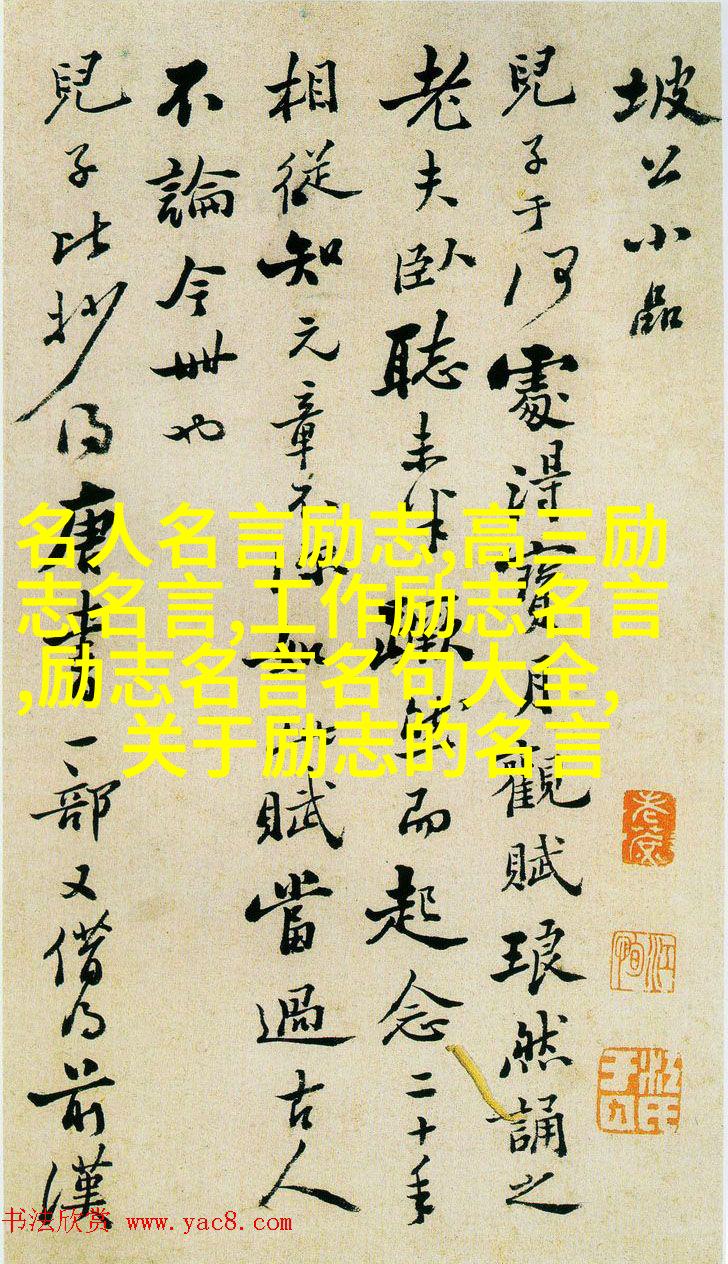 坡公小品
兒子于何處得寶月觀賦琅然誦之
老夫臥聽未半躍然而起念二十年
相從知元章不如此賦當過古人
不論今世也
兒子比抄得唐書一部又借得前漢
名人名言励志,高三励
志名言,工作励志名言
,励志名言名句大全,
关于励志的名言
书法欣赏 www.yac8.com